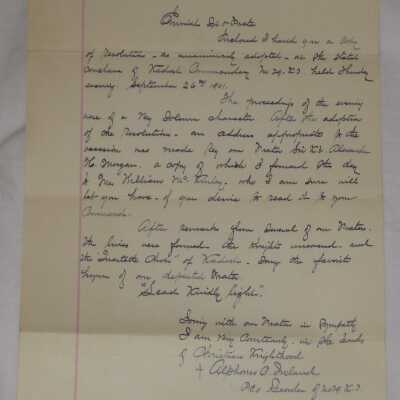 Eminent Sir & Frater
Inclosed I hand you a copy
of resolution - as unanimously adopted - at the stated
conclave of Kadosh Commandery No 29. K.T. held Thursday
evening. September 26th 1901.
The proceedings of the evening
were of a very solemn character. After the adoption
of the resolution - an address appropriate to the
occasion was made by our Frater Sir K.T. Alexander
H. Morgan. a copy of which I forward this day
to Mrs William McKinley. who I am sure will
let you have - if you desire to read it to your
Commandery.
After remarks from several of our Fraters.
the lines were formed. the Knights uncovered. and
the Quartette Choir of Kadosh. Sang the favorite
hymn of our departed Frater
"Lead Kindly light".
with our Fraters in Sympathy
I am very Courteously. in the bonds
of Christian Knighthood
+ Alphonso C. Ireland
Recorder of No 29 K.T.